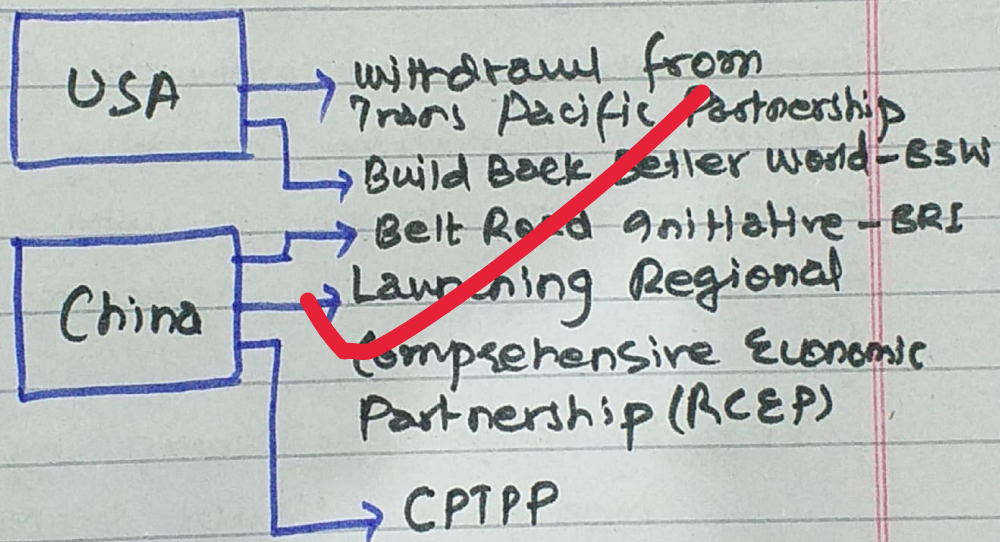 USA
withdrawl from
Trans Pacific Partnership
Build Back Better World-B3W
China
Belt Road Initiative-BRI
Launching Regional
Comprehensive Economic
Partnership (RCEP)
CPTPP